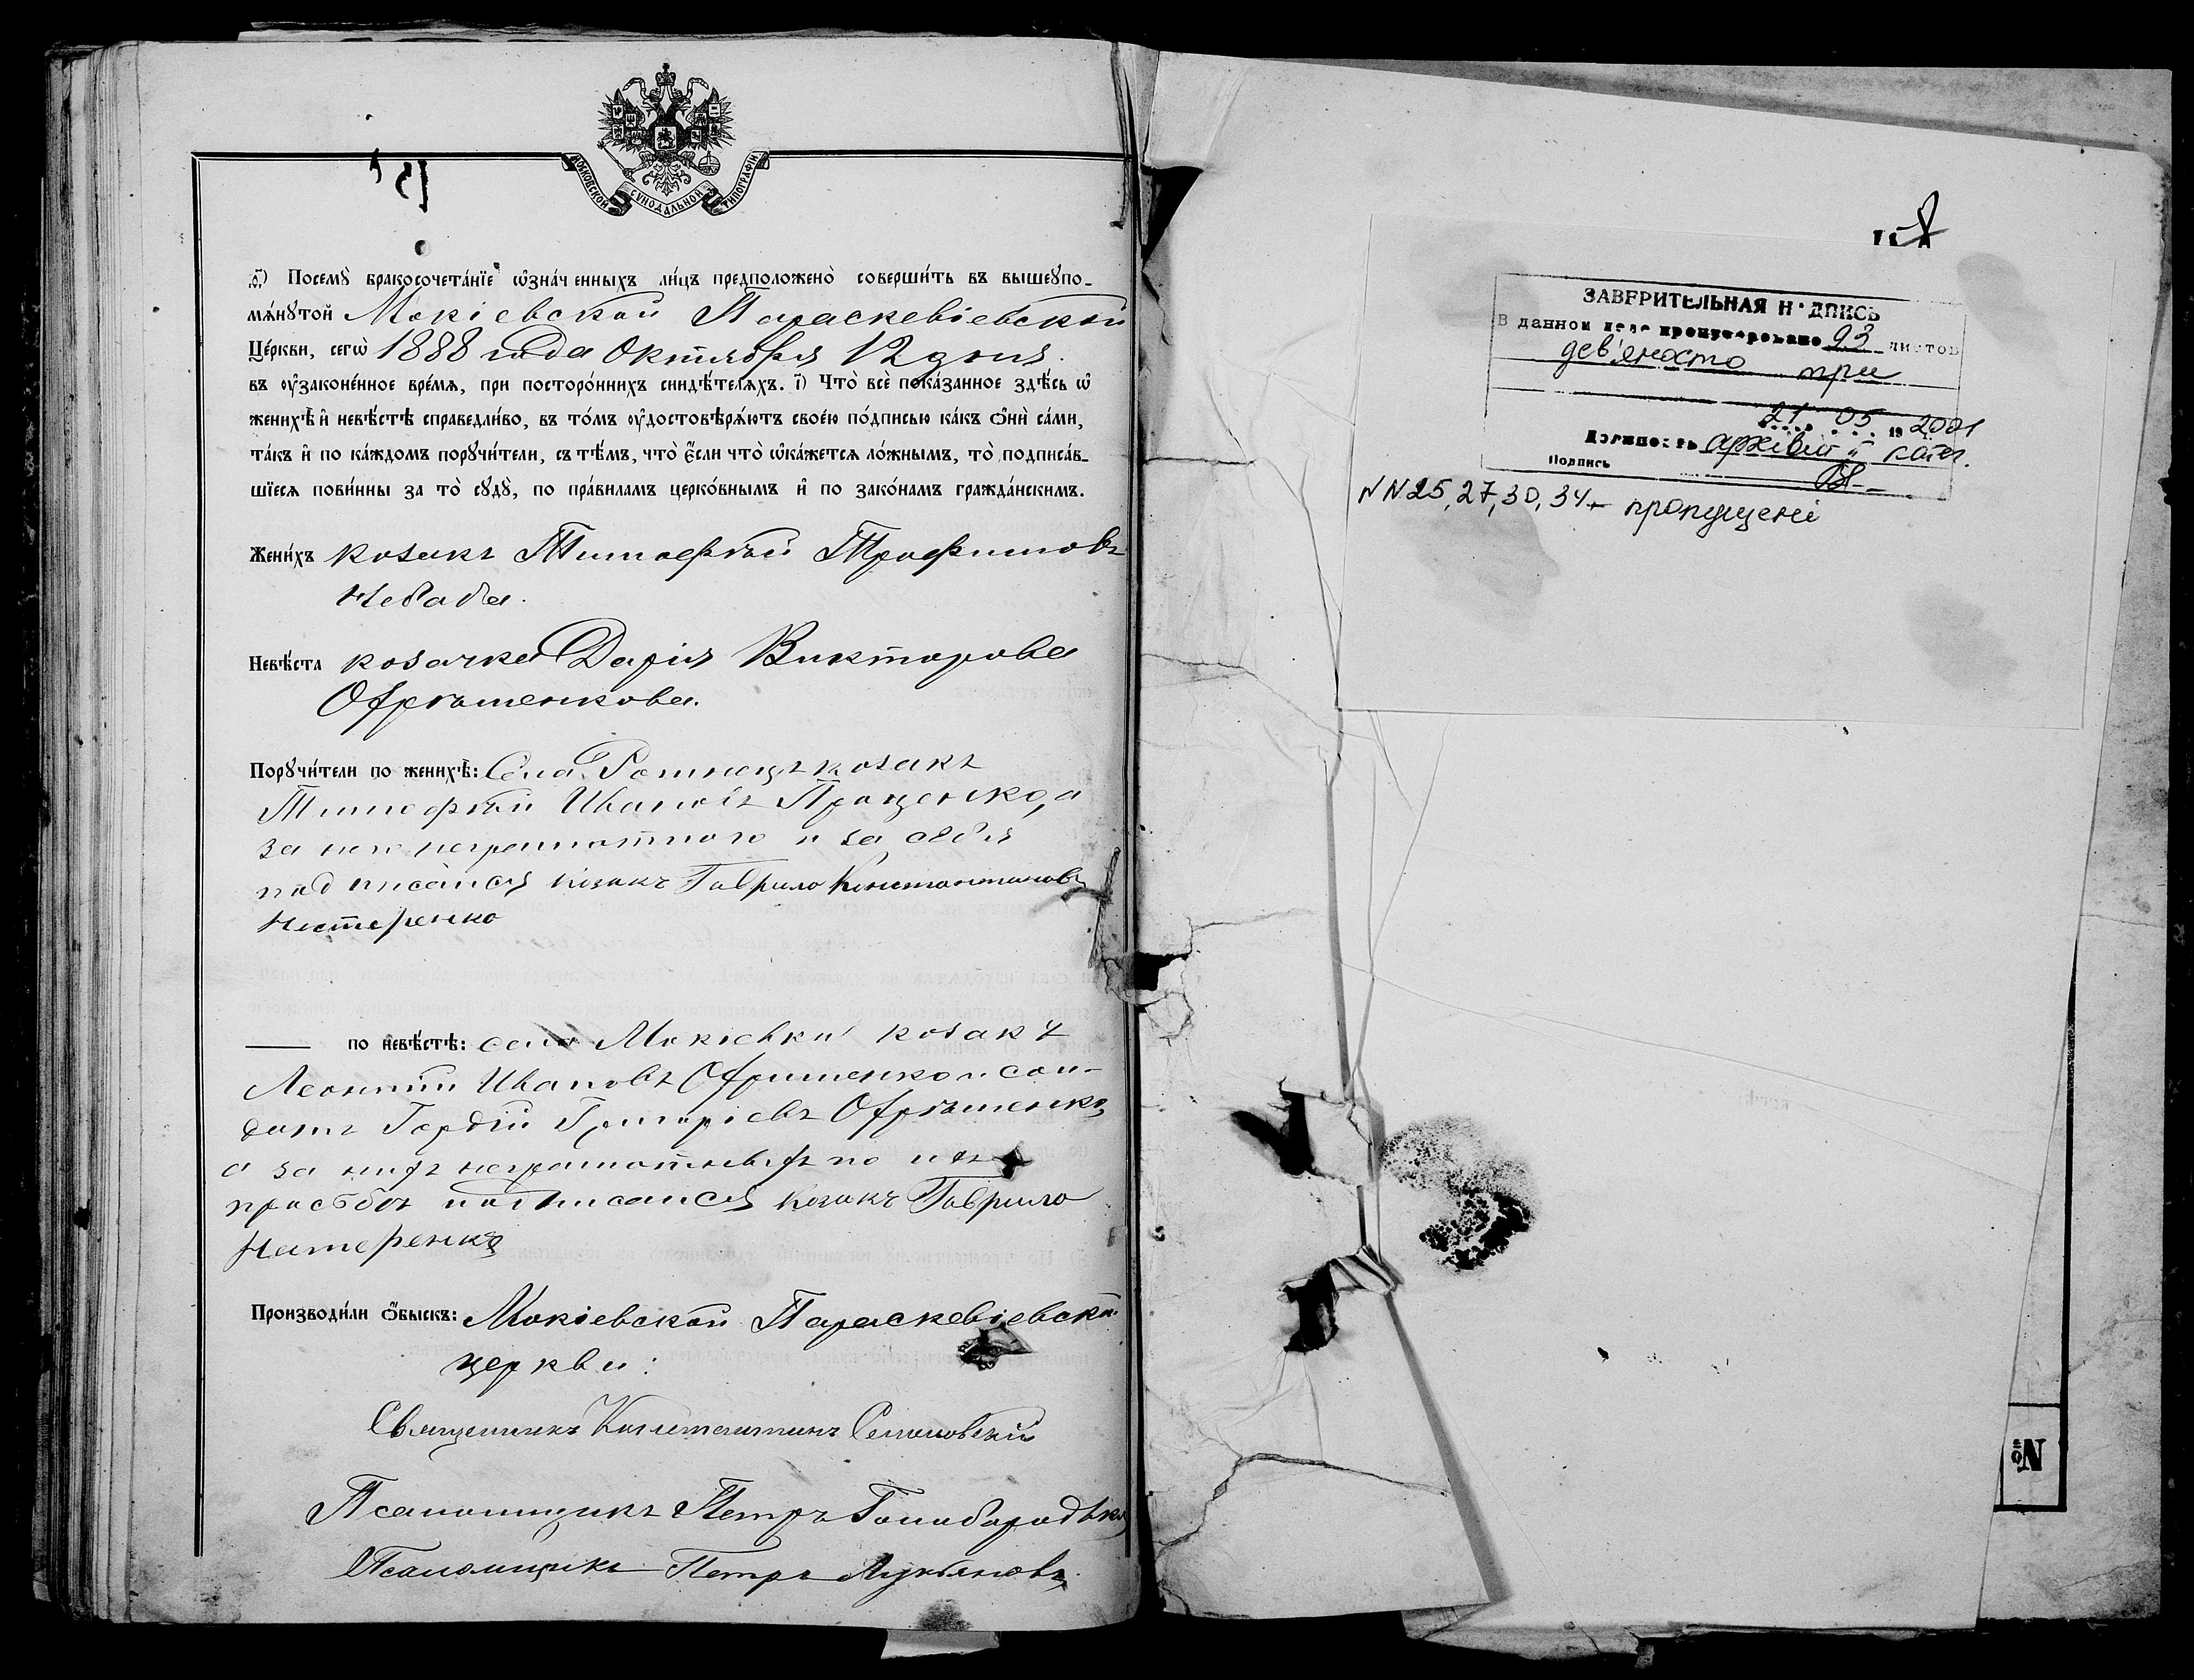 МОСКОВСКОЙ СУНОДАЛЬНОЙ ТИПОГРАФІИ
Посемꙋ̀ бракосочета́нїе ѡ҆зна́ченныхъ ли́цъ предположено̀ соверши́ть въ вышеꙋпо-
мѧ́нꙋтой Мокіевской Параскевіевской
Це́ркви, сегѡ̀ 1888 года Октября 12 дня.
въ ѹ҆законе́нное вре́мѧ, при посторо́ннихъ свидѣ́телѧхъ. і҃) Что̀ всѐ пока́занное здѣ́сь ѡ҆
женихѣ̀ и҆ невѣ́стѣ справедли́во, въ то́мъ ѹ҆достовѣрѧ́ютъ свое́ю по́дписью ка́къ ѻ҆нѝ са́ми,
та́къ и҆ по ка́ждомъ порꙋчи́тели, съ тѣ́мъ, что̀ є҆́сли что̀ ѡ҆ка́жетсѧ ло́жнымъ, то̀ подписа́в-
шїесѧ пови́нны за то̀ сꙋдꙋ̀, по пра́виламъ церко́внымъ и҆ по зако́намъ гражда́нскимъ.
Жени́хъ козакъ Тимофѣй Трофимовъ
Небаба.
Невѣ́ста козачка Дарія Викторова
Охрѣменкова.
Порꙋчи́тели по женихѣ̀: Села Ромнецъ козакъ
Тимофѣй Ивановъ Проценко, а
за него неграмотного и за себя
подписался козакъ Гаврило Константиновъ
Нестеренко
по невѣ́стѣ: села Мокіевки козакъ
Леонтій Ивановъ Охрименко и сол-
датъ Гордій Григоріевъ Охрѣменко,
а за нихъ неграмотныхъ по ихъ
просьбѣ подписался козакъ Гаврило
Нестеренко
Производи́ли ѻ҆́быскъ: Мокіевской Параскевіевской
церкви:
Священникъ Константинъ
Псаломщикъ Петръ Голобородько
Псаломщикъ Петръ Лукьяновъ
ЗАВЕРИТЕЛЬНАЯ НАДПИСЬ
В данном деле пронумеровано 93 листов
дев'яносто три
21 05 19 2001
Должность архівіст ІІ кат.
Подпись
NN 25, 27, 30, 34 – пропущені
№